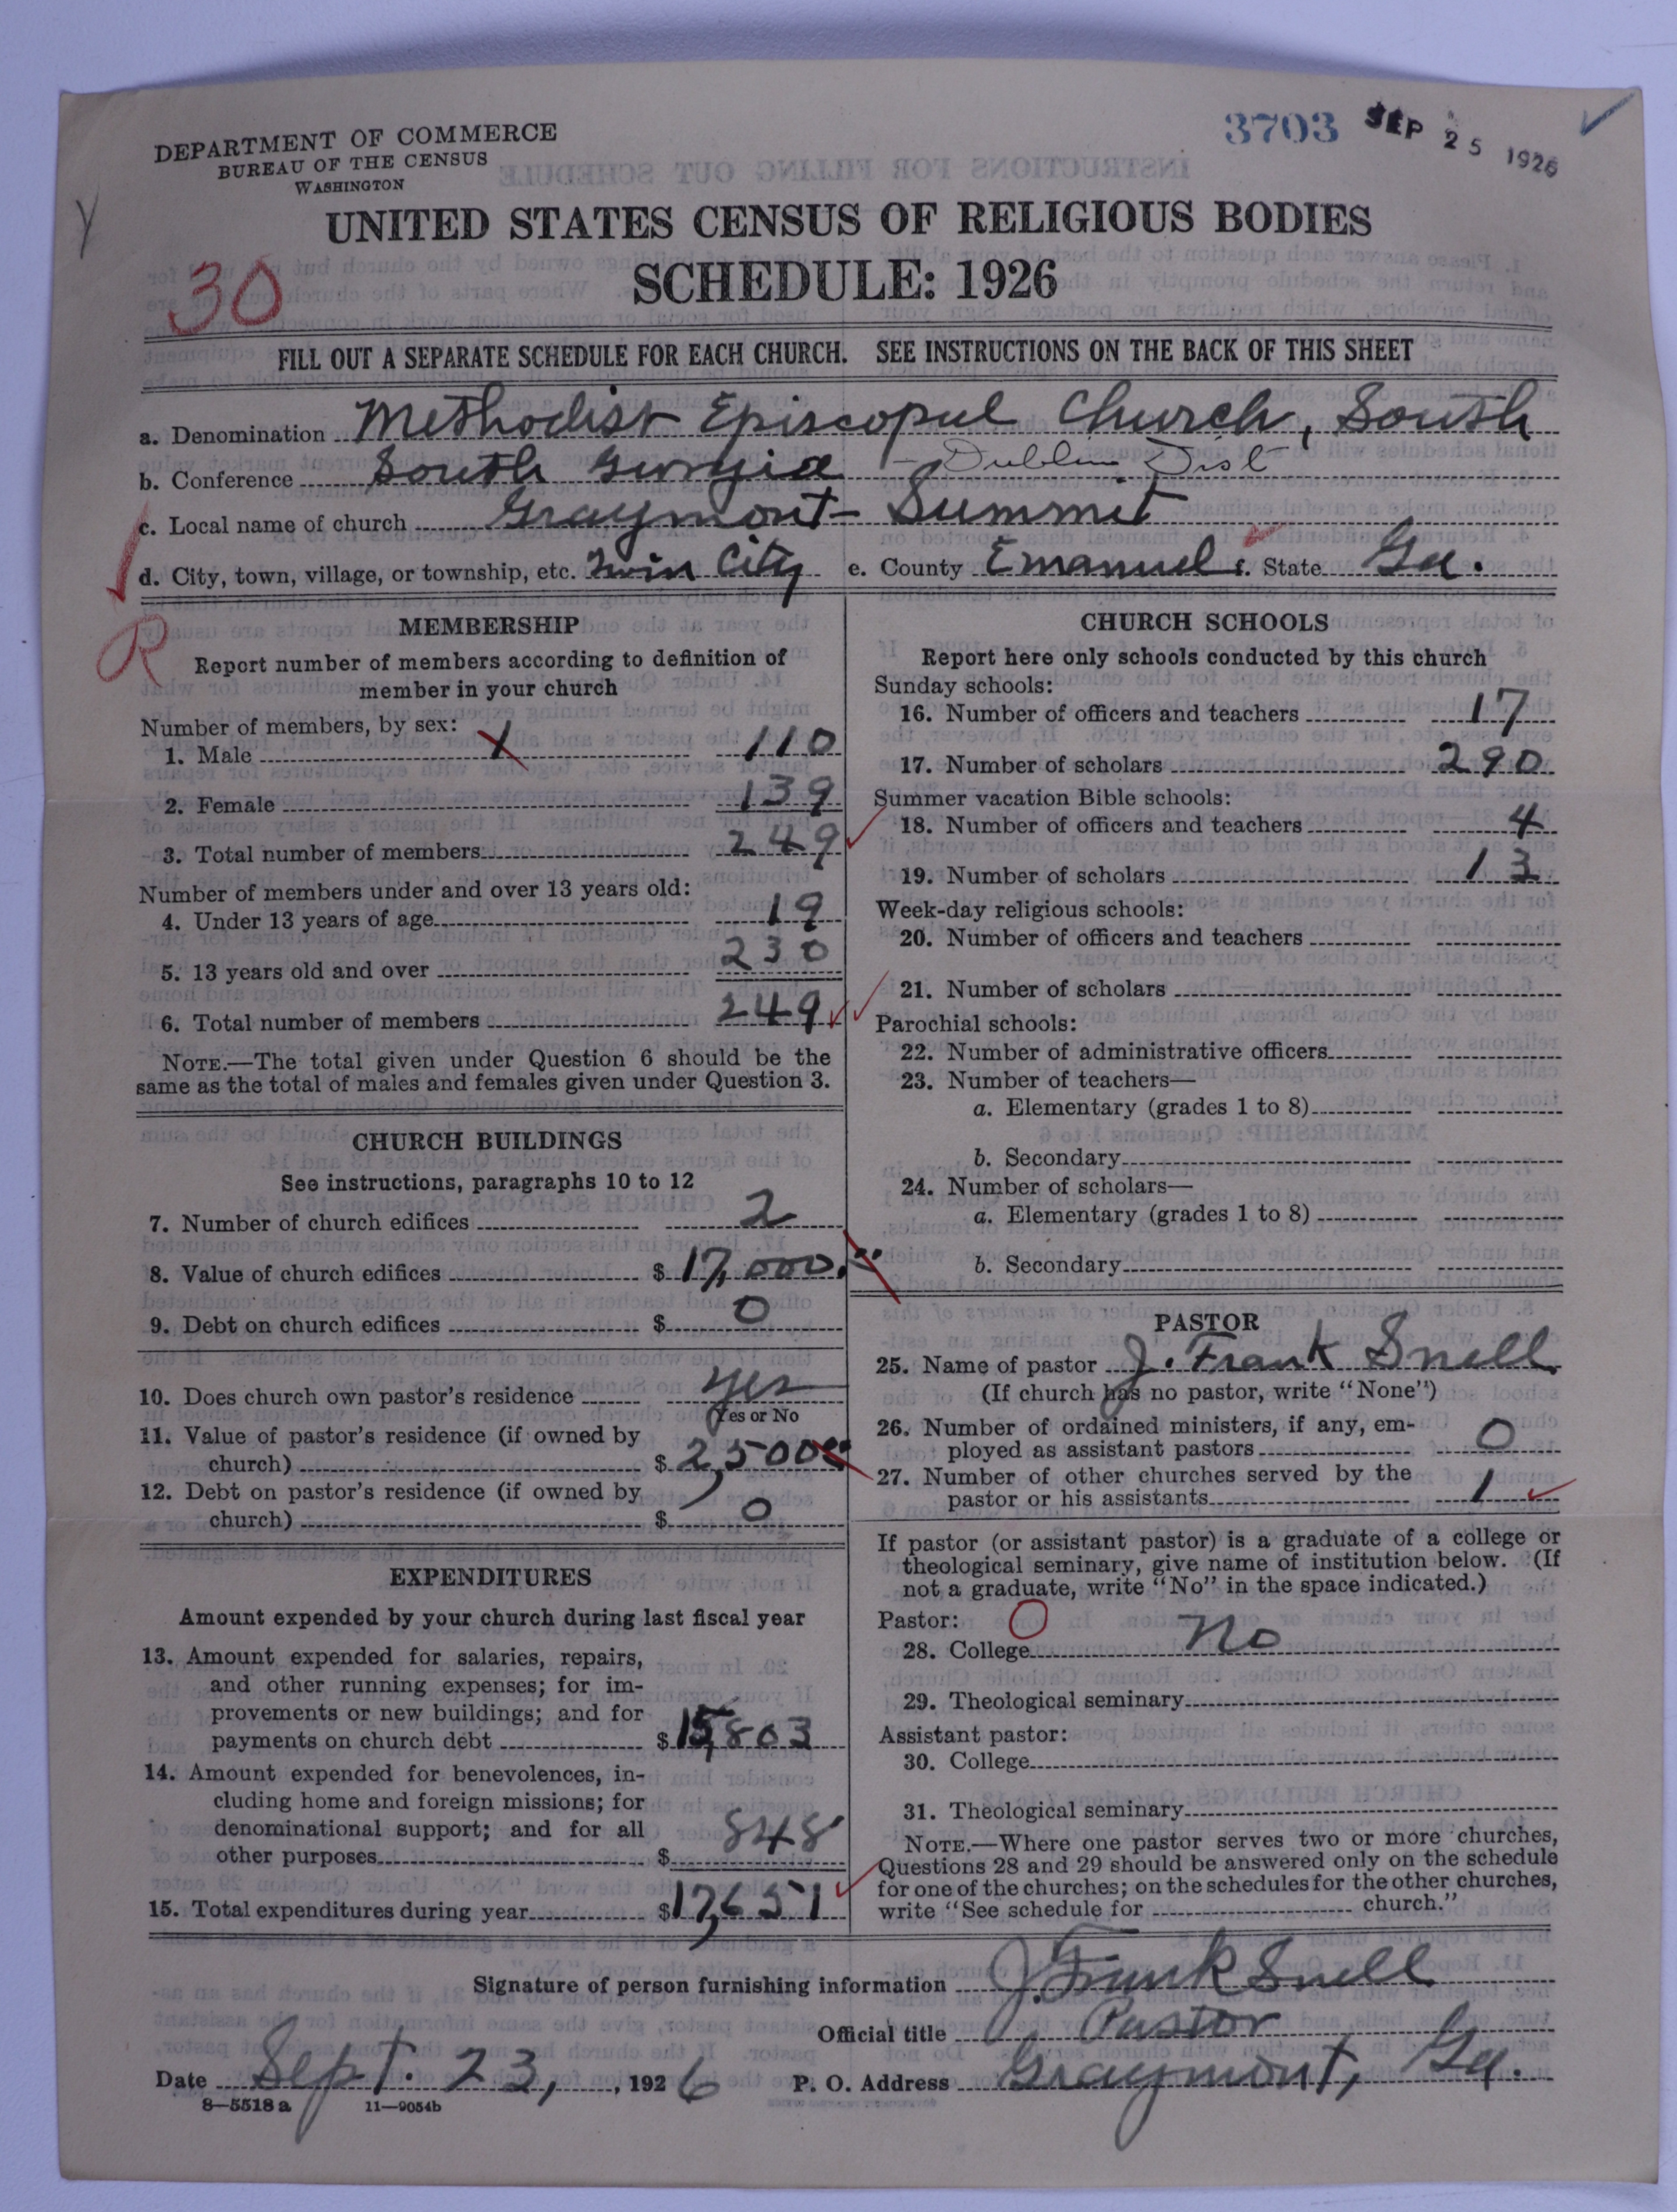 3703 SEP 25 1926
DEPARTMENT OF COMMERCE
BUREAU OF THE CENSUS
WASHINGTON
UNITED STATES CENSUS OF RELIGIOUS BODIES
SCHEDULE: 1926
30
FILL OUT A SEPARATE SCHEDULE FOR EACH CHURCH. SEE INSTRUCTIONS ON THE BACK OF THIS SHEET
a. Denomination Methodist Episcopal Church, South
b. Conference South Georgia - Dublin Dist
c. Local name of church Graymont - Summit
d. City, town, village, or township, etc. Twin City e. County Emanuel f. State Ga.
R
MEMBERSHIP
Report number of members according to definition of
member in your church
Number of members, by sex:
1. Male 110
2. Female 139
3. Total number of members 249
Number of members under and over 13 years old:
4. Under 13 years of age 19
5. 13 years old and over 230
6. Total number of members 249
NOTE.—The total given under Question 6 should be the
same as the total of males and females given under Question 3.
CHURCH BUILDINGS
See instructions, paragraphs 10 to 12
7. Number of church edifices 2
8. Value of church edifices $ 17,000.00
9. Debt on church edifices $ 0
10. Does church own pastor's residence yes
Yes or No
11. Value of pastor's residence (if owned by
church) $ 2,500.00
12. Debt on pastor's residence (if owned by
church) $ 0
EXPENDITURES
Amount expended by your church during last fiscal year
13. Amount expended for salaries, repairs,
and other running expenses; for im-
provements or new buildings; and for
payments on church debt $ 15,803
14. Amount expended for benevolences, in-
cluding home and foreign missions; for
denominational support; and for all
other purposes $ 848
15. Total expenditures during year $ 17,651
CHURCH SCHOOLS
Report here only schools conducted by this church
Sunday schools:
16. Number of officers and teachers 17
17. Number of scholars 290
Summer vacation Bible schools:
18. Number of officers and teachers 4
19. Number of scholars 13
Week-day religious schools:
20. Number of officers and teachers
21. Number of scholars
Parochial schools:
22. Number of administrative officers
23. Number of teachers—
a. Elementary (grades 1 to 8)
b. Secondary
24. Number of scholars—
a. Elementary (grades 1 to 8)
b. Secondary
PASTOR
25. Name of pastor J. Frank Snell
(If church has no pastor, write "None")
26. Number of ordained ministers, if any, em-
ployed as assistant pastors 0
27. Number of other churches served by the
pastor or his assistants 1
If pastor (or assistant pastor) is a graduate of a college or
theological seminary, give name of institution below. (If
not a graduate, write "No" in the space indicated.)
Pastor: O
28. College No
29. Theological seminary
Assistant pastor:
30. College
31. Theological seminary
NOTE.—Where one pastor serves two or more churches,
Questions 28 and 29 should be answered only on the schedule
for one of the churches; on the schedules for the other churches,
write "See schedule for church."
Signature of person furnishing information J. Frank Snell
Official title Pastor
Date Sept. 23, , 1926 P. O. Address Graymont, Ga.
8—5518a 11—9054b